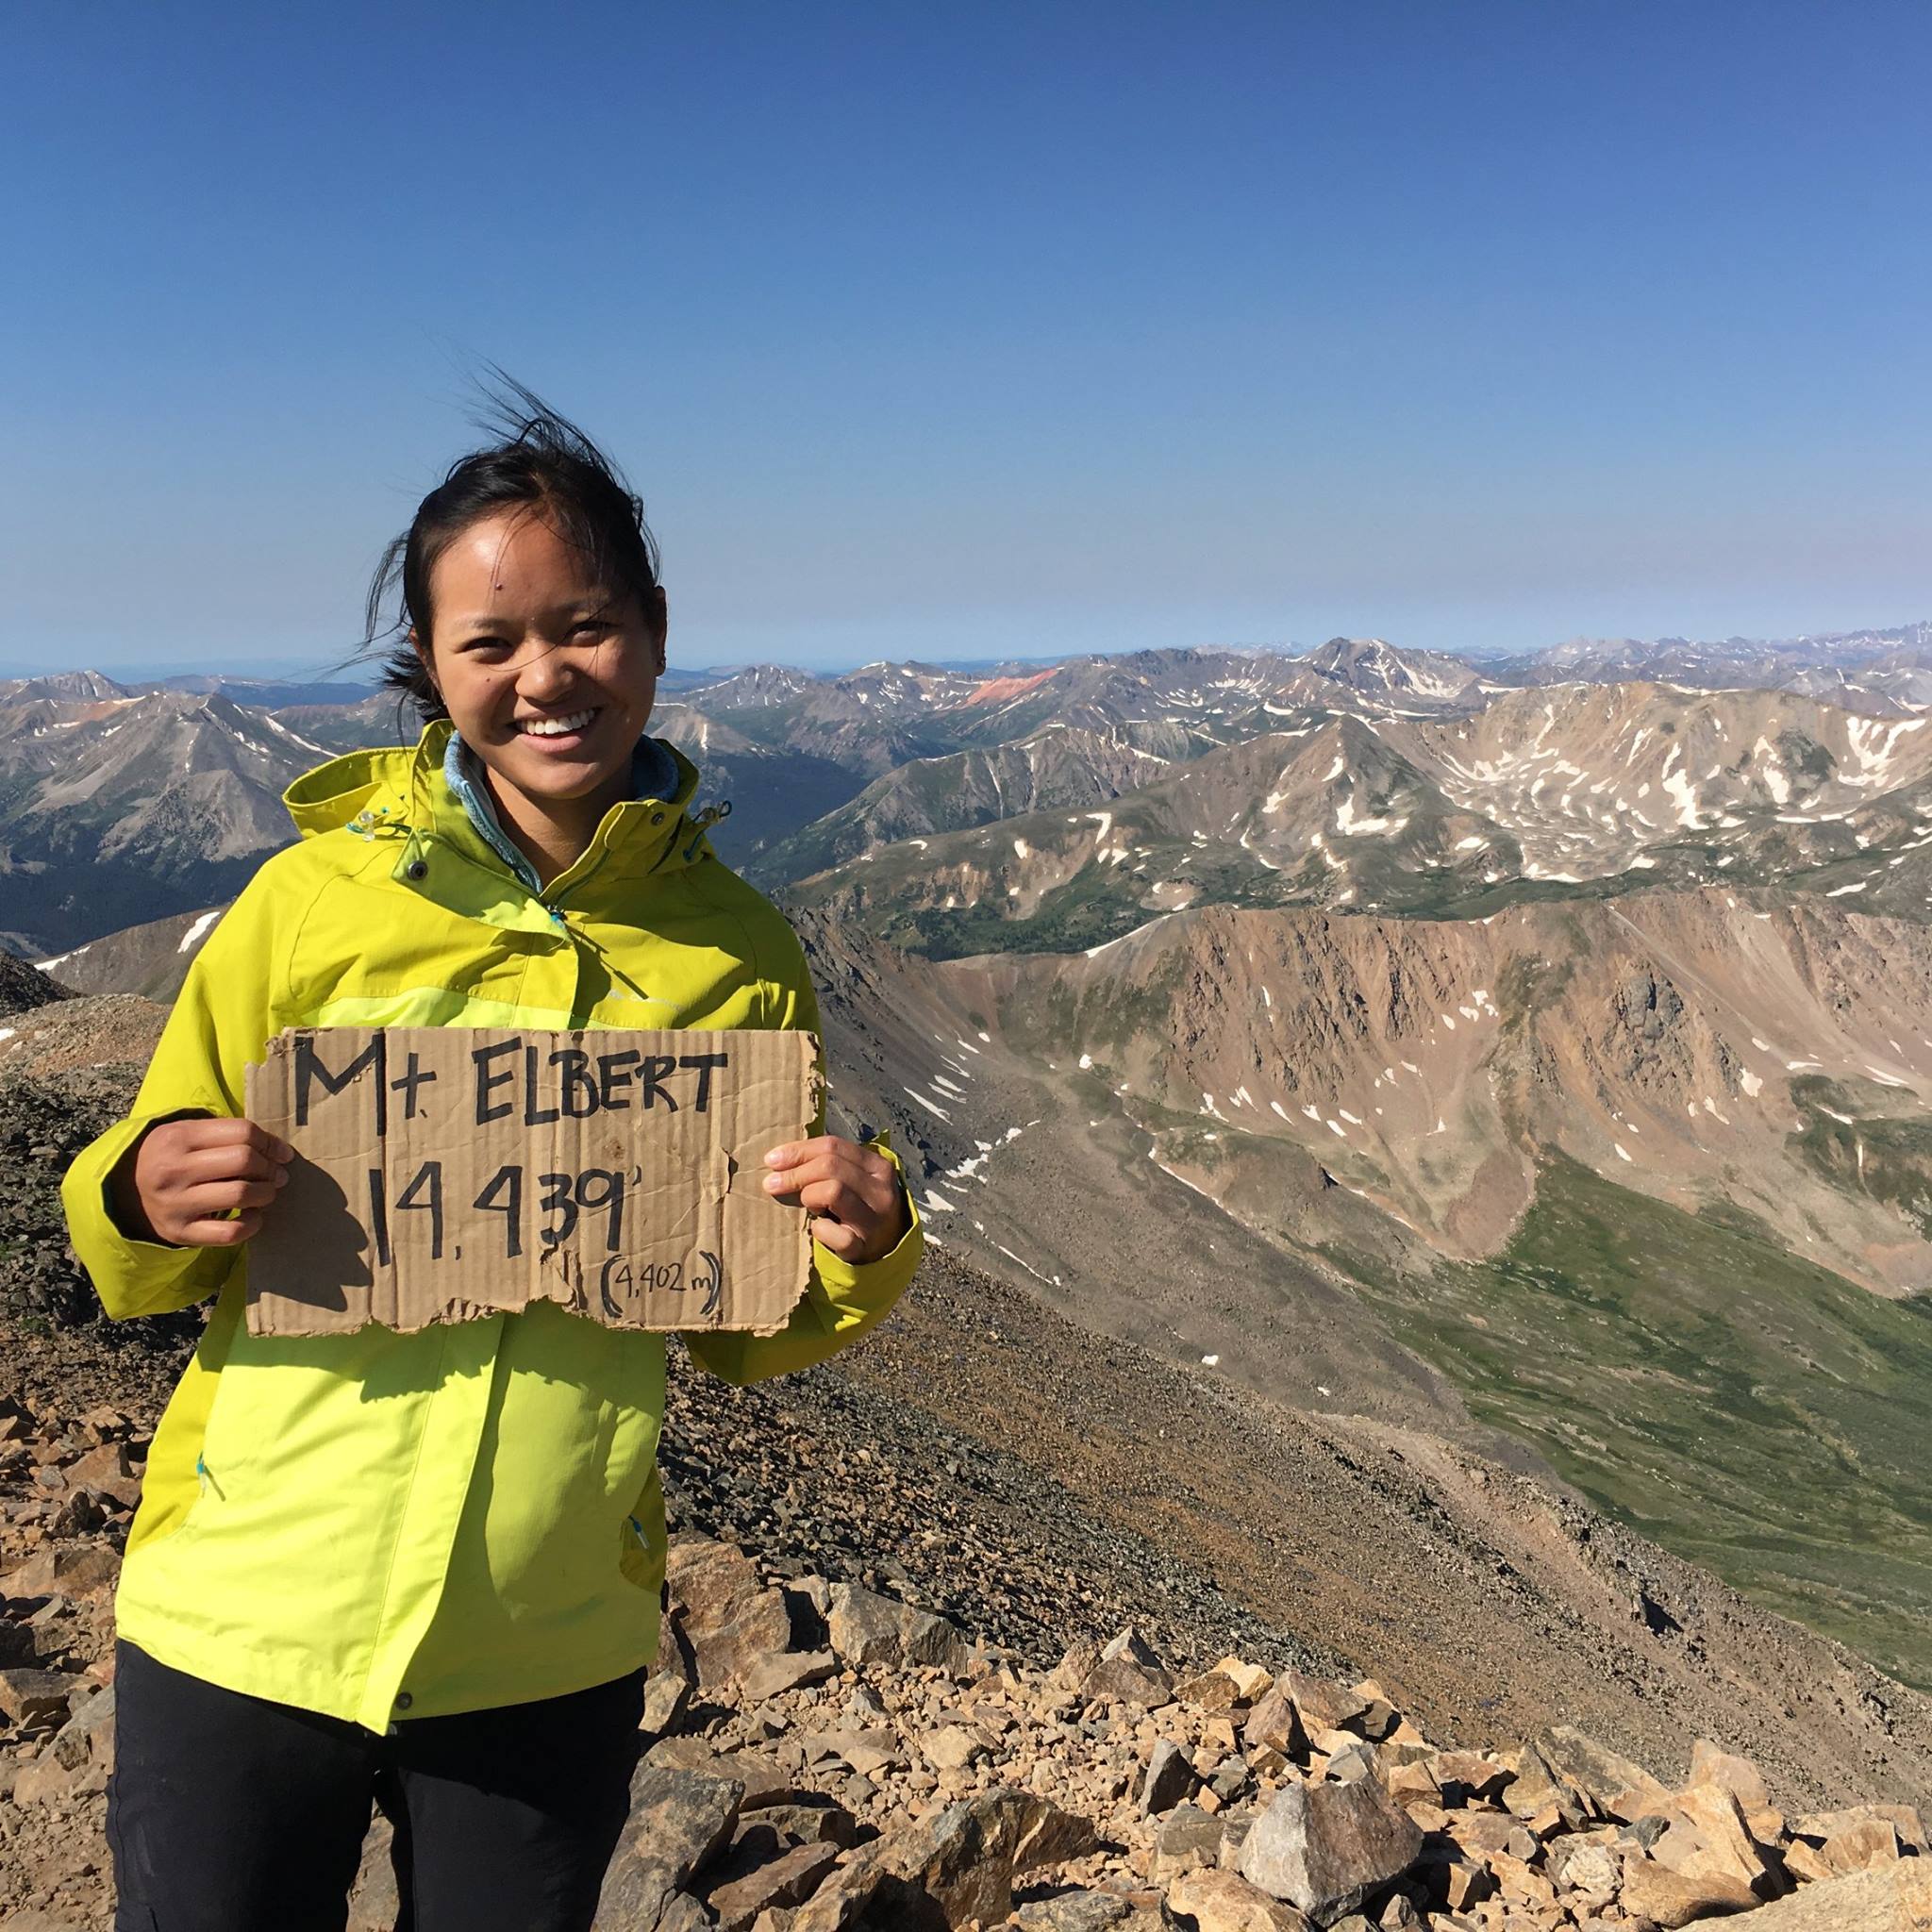 Mt. ELBERT
14,439'
(4,402 m)